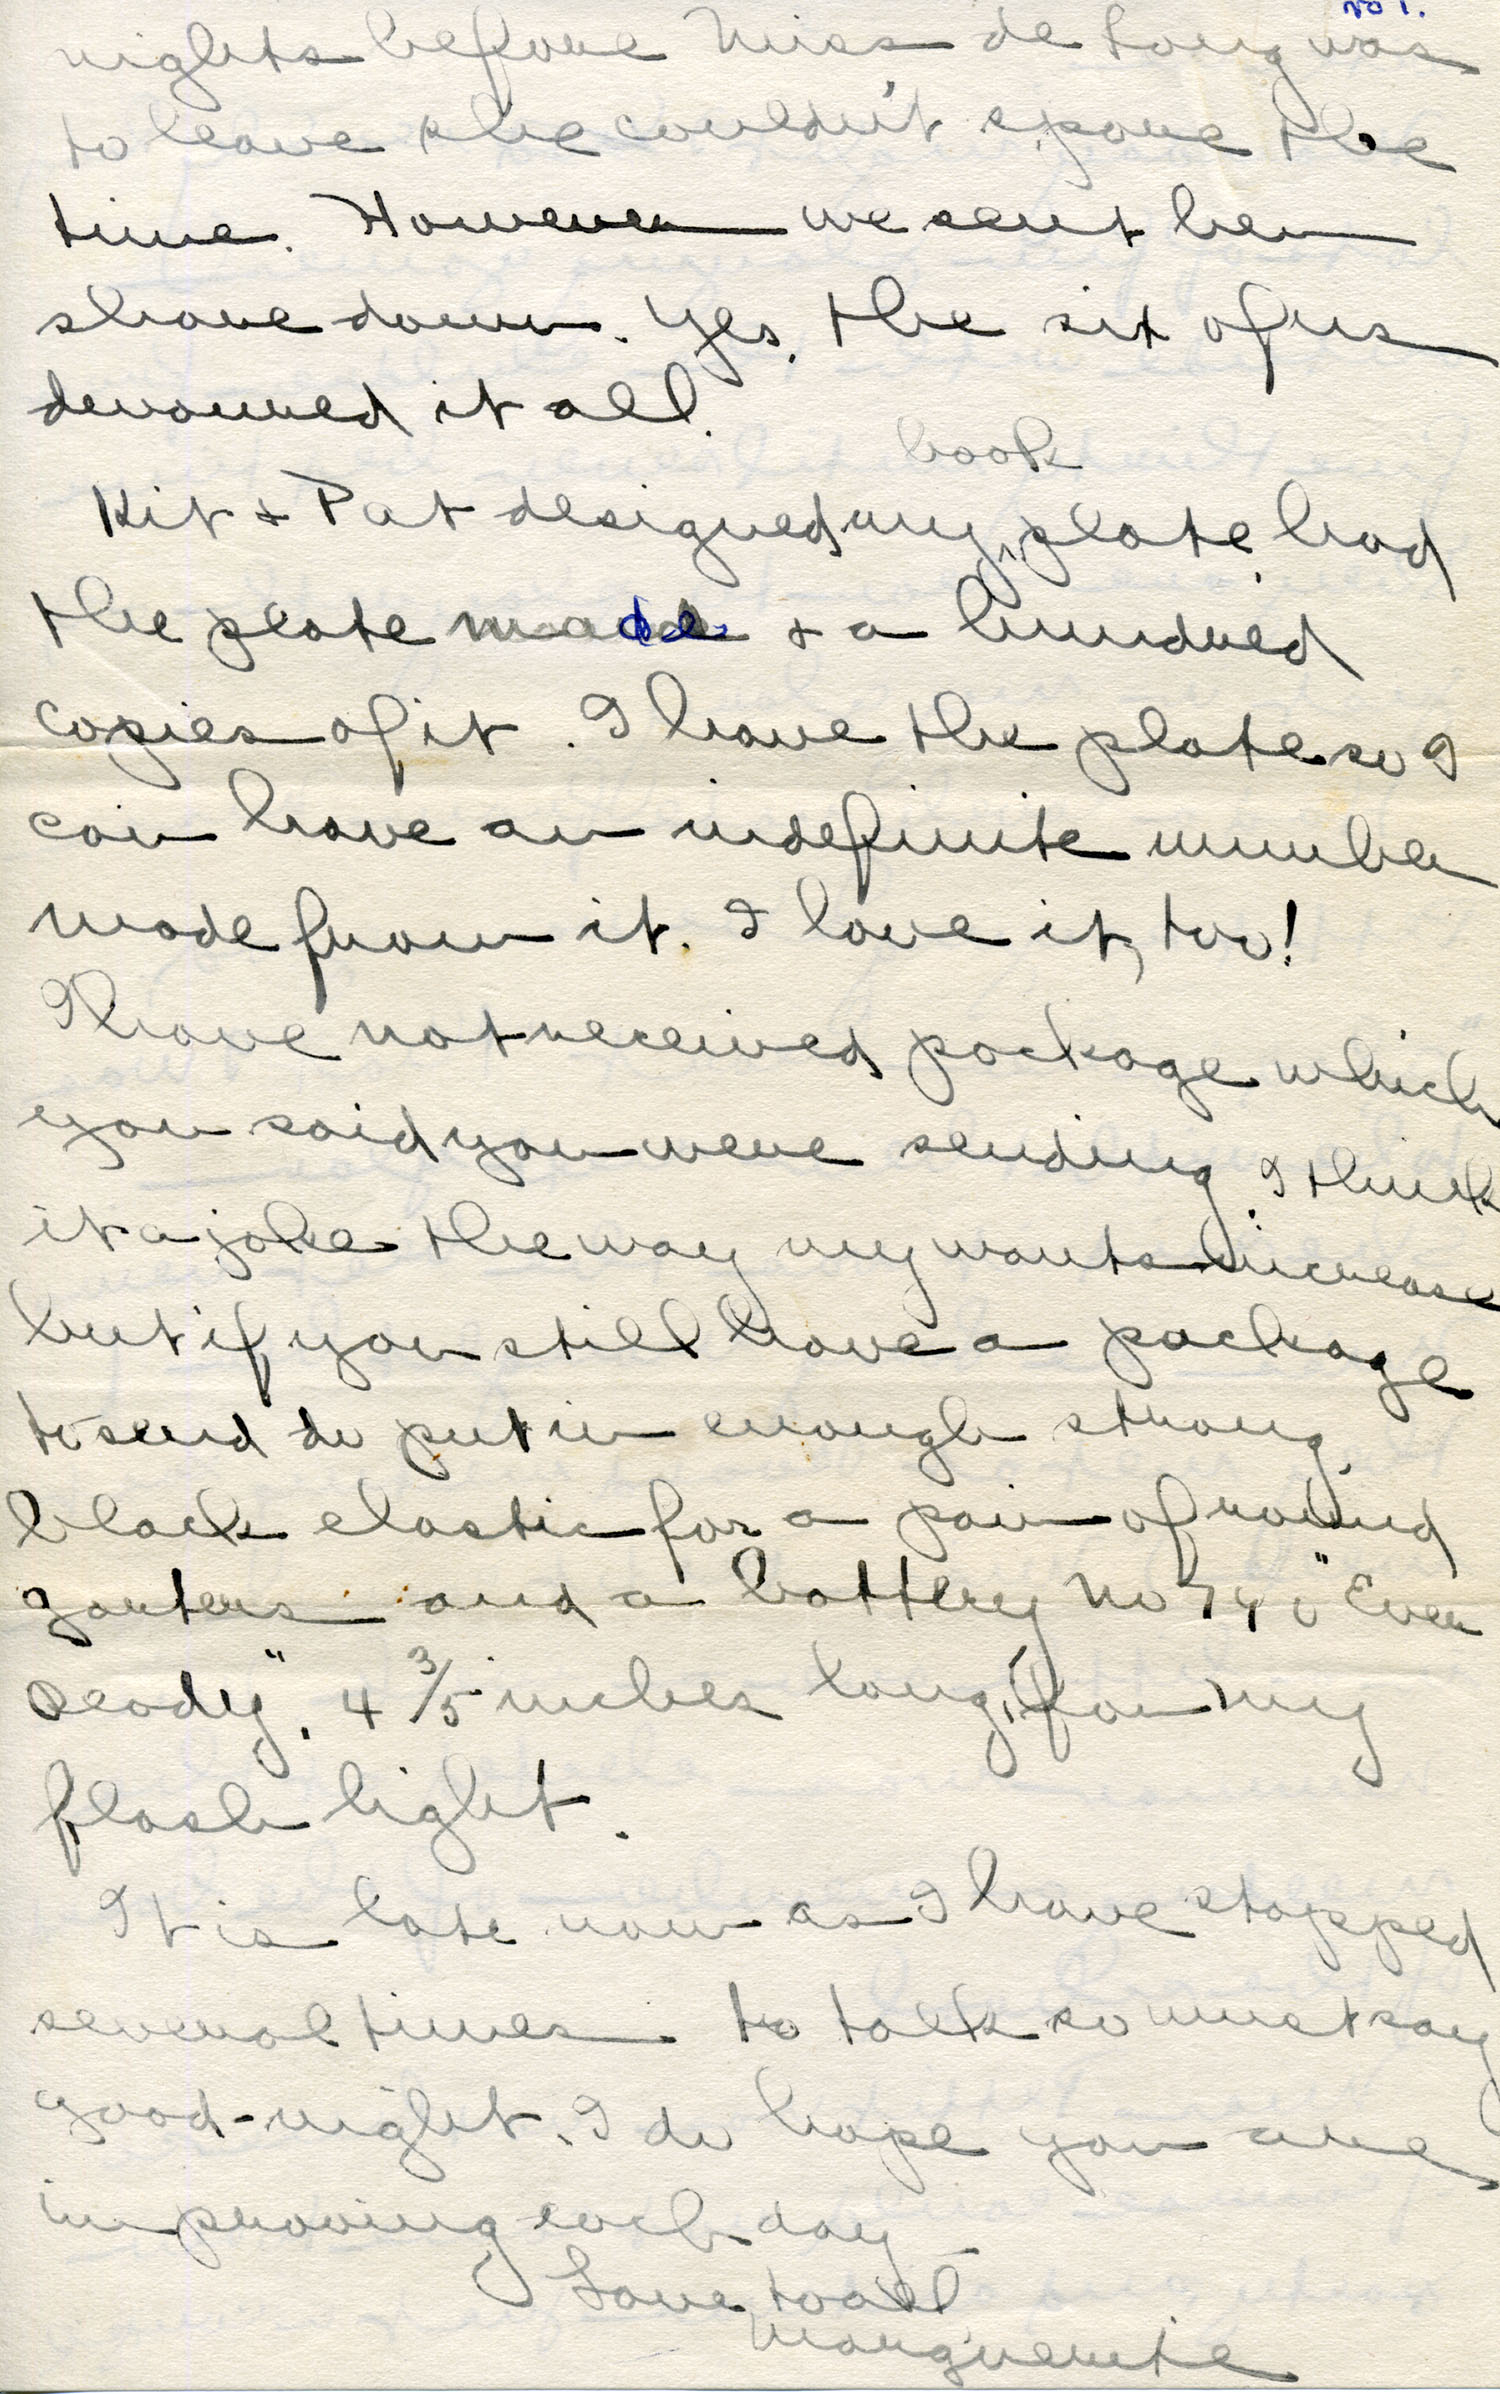 nights before Miss de Long was
to leave she couldn't spare the
time. However we sent her
share down. Yes, the six of us
devoured it all.
book
Kit + Pat designed my ^ plate, had
the plate made + a hundred
copies of it. I have the plate so I
can have an indefinite number
made from it. I love it, too!
I have not received package which
you said you were sending. I think
it a joke the way my wants increase
but if you still have a package
to send do put in enough strong,
black elastic for a pair of round
garters and a battery No 790 "Ever
Ready". 4 3/5 inches long, for my
flash light.
It is late now as I have stopped
several times to talk so must say
good-night. I do hope you are
improving each day –
Love to all,
Marguerite